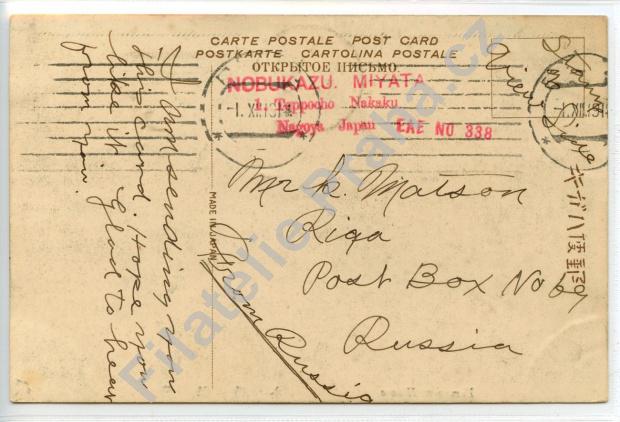 CARTE POSTALE POST CARD
POSTKARTE CARTOLINA POSTALE
ОТКРЫТОЕ ПИСЬМО
NOBUKAZU. MIYATA
1. Teppocho Nakaku
Nagoya Japan EAE NO 338
Stamp
on
View Side
Mr K. Matson
Riga
Post Box No 69
Russia
from Russia
I am sending you
this card. Hope you
like it. Glad to hear
from you.
MADE IN JAPAN
Filatelie Praha.cz